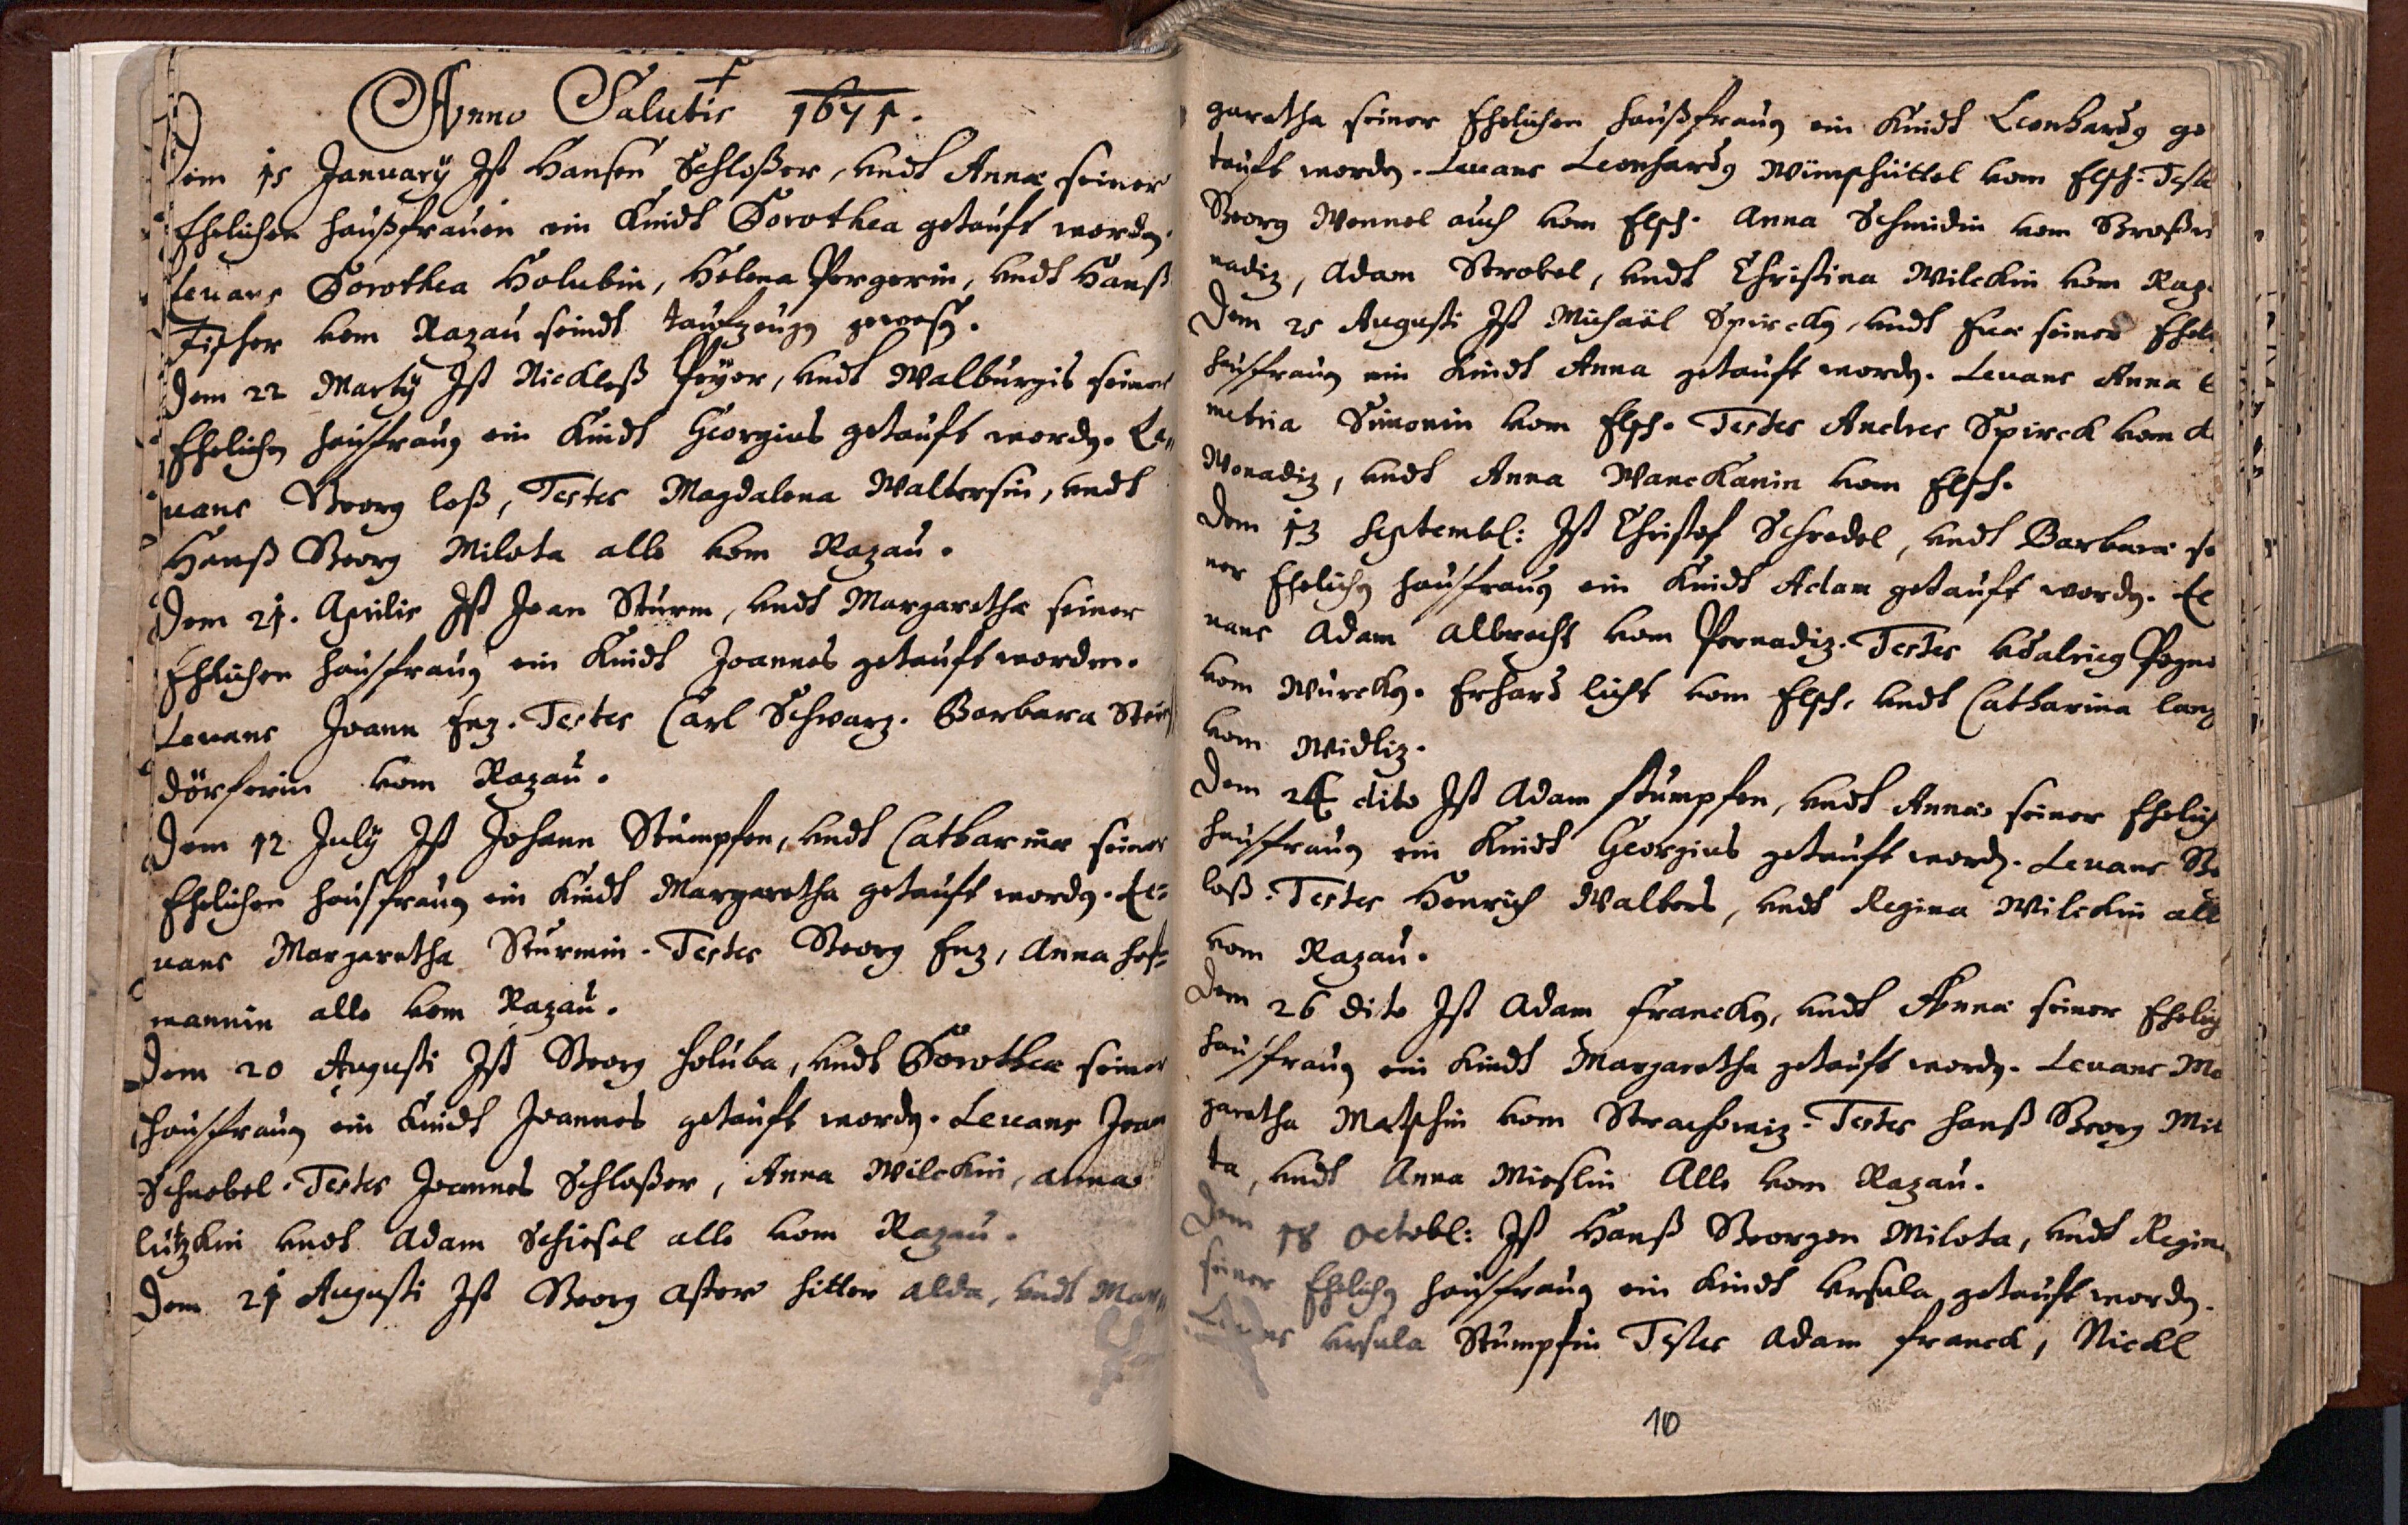 Anno Salutis 1671.
Dem 15 January Ist Hansen Schloßer, vndt Annæ seiner
Ehelichen haußfrauen ein Kindt Dorothea getauft worden.
Leuans Dorothea Holubin, Helena Pergerin, vndt Hanß
Fischer vom Razau seindt taufzeugen gewesen.
Dem 22 Marty Ist Nickleß Peÿer, vndt Walburgis seiner
Ehelichen hausfrauen ein Kindt Georgius getauft worden. Le„
uans Georg loß, Testes Magdalena Waltersin, vndt
Hanß Georg Milota alle vom Razau.
Dem 21. Aprilis Ist Jean Sturm, vndt Margarethæ seiner
Ehlichen hausfrauen ein Kindt Joannes getauft worden.
Leuans Joann Enz. Testes Carl Schwarz. Barbara Stein
dörferin vom Razau.
Dem 12 July Ist Johann Stumpfen, vndt Catharinæ seiner
Ehelichen hausfrauen ein Kindt Margaretha getauft worden. Le=
uans Margaretha Sturmin. Testes Georg Enz, Anna hof=
mannin alle vom Razau.
Dem 20 Augusti Ist Georg holuba, vndt Dorotheæ seiner
hausfrauen ein Kindt Joannes getauft worden. Leuans Joan
Schnebel. Testes Joannes Schloßer, Anna Wilckin, Anna
lutzkin vndt Adam Schiesel alle vom Razau.
Dem 21 Augusti Ist Georg alda, vndt Mar„
garetha seiner Ehelichen haußfrauen ein Kindt Leonhardus ge
tauft worden. Leuans Leonhardus Wimphüttel vom Elsch: Teste
Georg Wennel auch vom Elsch. Anna Schmidin vom
nadiz, Adam Strobel, vndt Christina Wilckin vom Raz
Dem 25 Augusti Ist Michaël Spircken, vndt Euæ seiner Ehel
hausfrauen ein Kindt Anna getauft worden. Leuans Anna
metria Simonin vom Elsch. Testes Andres Spirck vom
Wonadiz, vndt Anna Wanckanin vom Elsch.
Dem 13 Septembl: Ist Christof Schredel, vndt Barbaræ se
ner Ehelichen hausfrauen ein Kindt Adam getauft worden. Le
uans Adam Albrecht vom Pernadiz. Testes Vdalricus
vom Wurcken. Erhard licht vom Elsch. vndt Catharina lang
vom Widliz.
Dem 24 dito Ist Adam Stumpfen, vndt Annæ seiner Ehelich
hausfrauen ein Kindt Georgius getauft worden. Leuans Ge
loß. Testes Henrich Walters, vndt Regina Wilckin all
vom Razau.
Dem 26 dito Ist Adam Francken, vndt Annæ seiner Ehelich
hausfrauen ein Kindt Margaretha getauft worden. Leuans Ma
garetha Matschin vom Strachowiz. Testes Hanß Georg Mil
ta, vndt Anna Mieslin Alle vom Razau.
Dem 18 Octobl: Ist Hanß Georgen Milota, vndt Regin
seiner Ehelichen hausfrauen ein Kindt Vrsula getauft worden.
Leuans Vrsula Stumpfin Testes Adam franck, Nickl
10